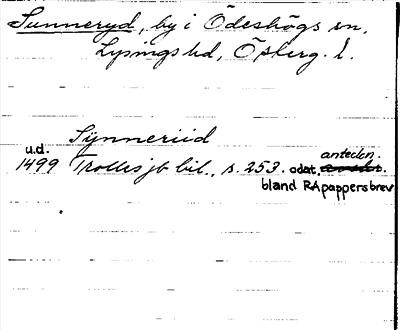 Sunneryd, by i Ödeshögs sn,
Lysings hd, Österg. l.
Sÿnneriid
u.d.
1499 Trolles jb bil., s. 253. odat. anteckn.
bland RApappersbrev